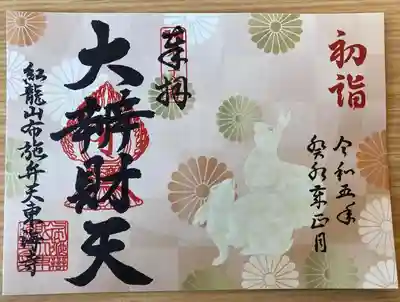 初詣
令和五年
癸卯年正月
奉拝
大辨財天
紅龍山布施弁天東海寺